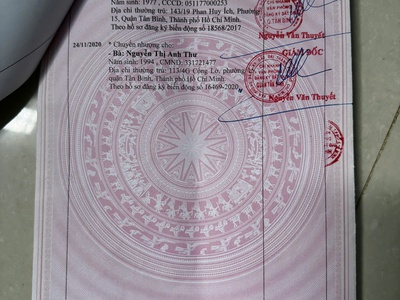 Sinh năm: 1977, CCCD: 051177000253
Địa chỉ thường trú: 143/19 Phan Huy Ích, Phường
15, Quận Tân Bình, Thành phố Hồ Chí Minh.
Theo hồ sơ đăng ký biến động số 18568/2017
Nguyễn Văn Thuyết
24/11/2020 * Chuyển nhượng cho:
GIÁM ĐỐC
- Bà: Nguyễn Thị Anh Thư
Sinh năm: 1994 , CMND: 331721477
Địa chỉ thường trú: 113/4G Cống Lở, phường
quận Tân Bình, Thành phố Hồ Chí Minh
Theo hồ sơ đăng ký biến động số 16469-2020
Nguyễn Văn Thuyết